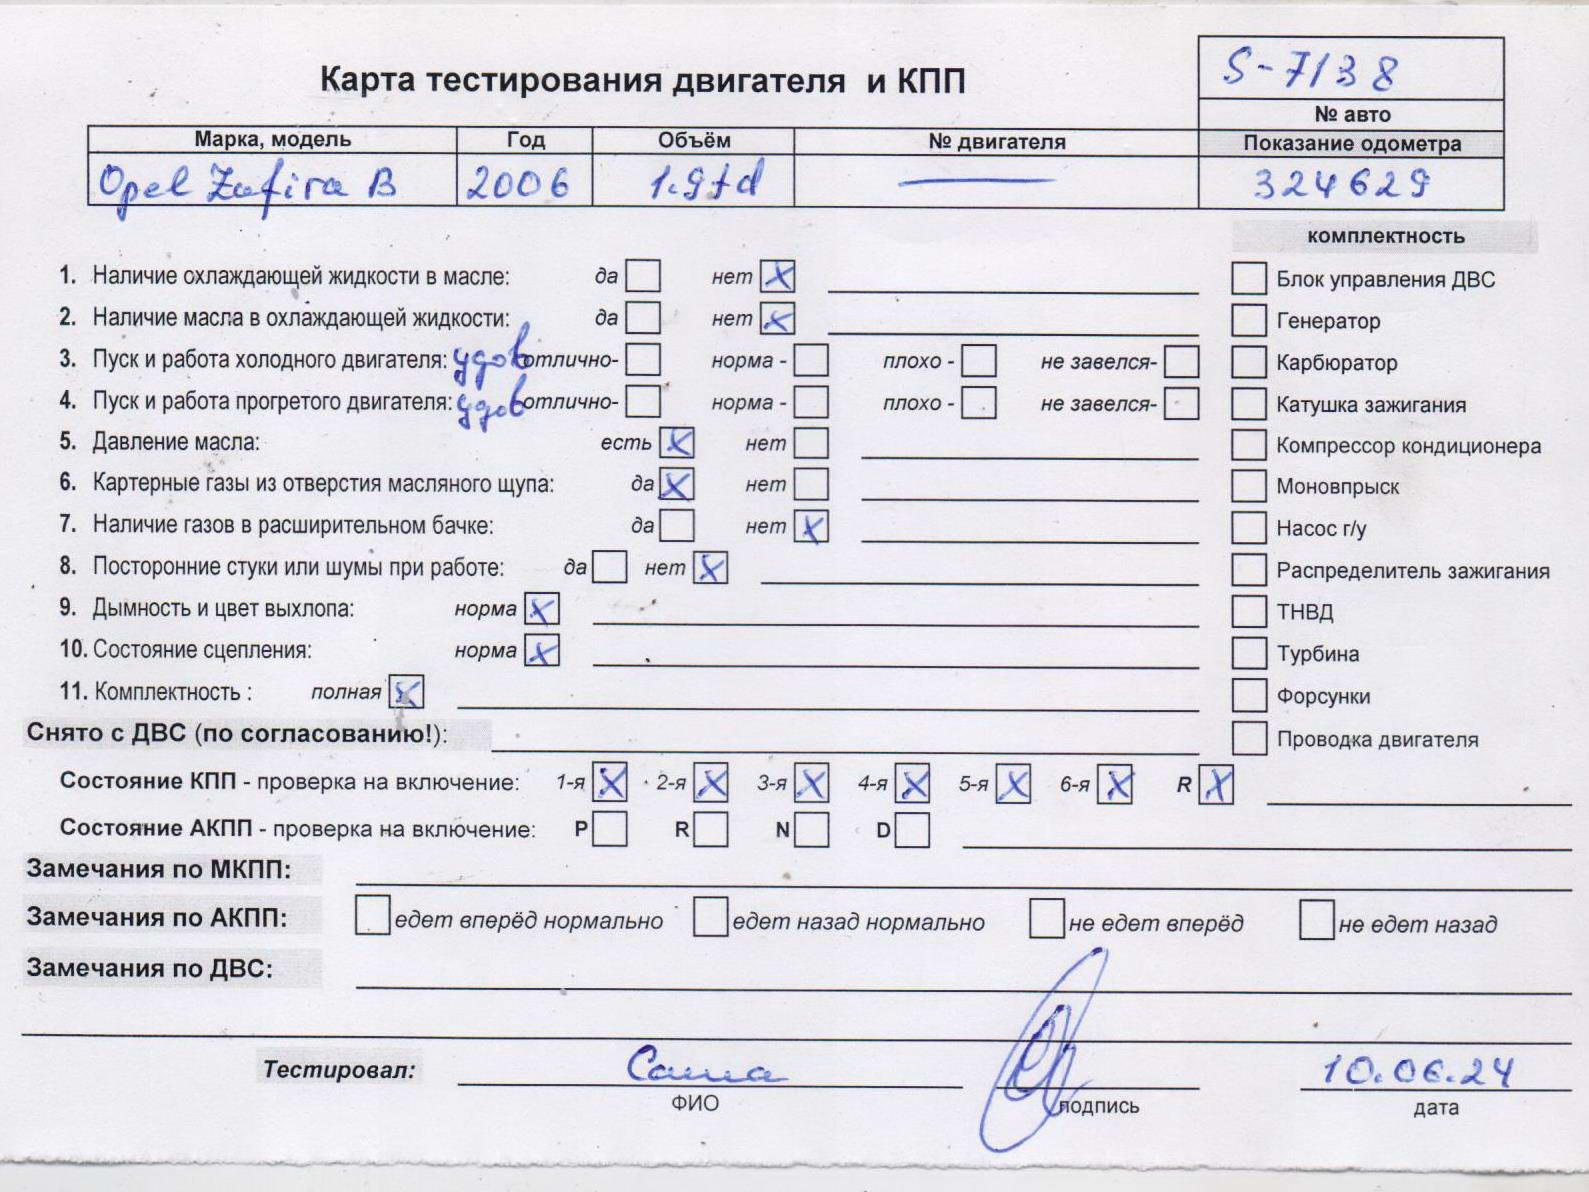 S-7138
Карта тестирования двигателя и КПП
№ авто
Марка, модель Год Объём № двигателя Показание одометра
Opel Zafira B 2006 1.9td — 324629
комплектность
1. Наличие охлаждающей жидкости в масле: да нет X Блок управления ДВС
2. Наличие масла в охлаждающей жидкости: да нет X Генератор
3. Пуск и работа холодного двигателя: удов отлично- норма - плохо - не завелся- Карбюратор
4. Пуск и работа прогретого двигателя: удов отлично- норма - плохо - не завелся- Катушка зажигания
5. Давление масла: есть X нет Компрессор кондиционера
6. Картерные газы из отверстия масляного щупа: да X нет Моновпрыск
7. Наличие газов в расширительном бачке: да нет X Насос г/у
8. Посторонние стуки или шумы при работе: да нет X Распределитель зажигания
9. Дымность и цвет выхлопа: норма X ТНВД
10. Состояние сцепления: норма X Турбина
11. Комплектность : полная X Форсунки
Снято с ДВС (по согласованию!): Проводка двигателя
Состояние КПП - проверка на включение: 1-я X 2-я X 3-я X 4-я X 5-я X 6-я X R X
Состояние АКПП - проверка на включение: P R N D
Замечания по МКПП:
Замечания по АКПП: едет вперёд нормально едет назад нормально не едет вперёд не едет назад
Замечания по ДВС:
Тестировал: Саша 10.06.24
ФИО подпись дата